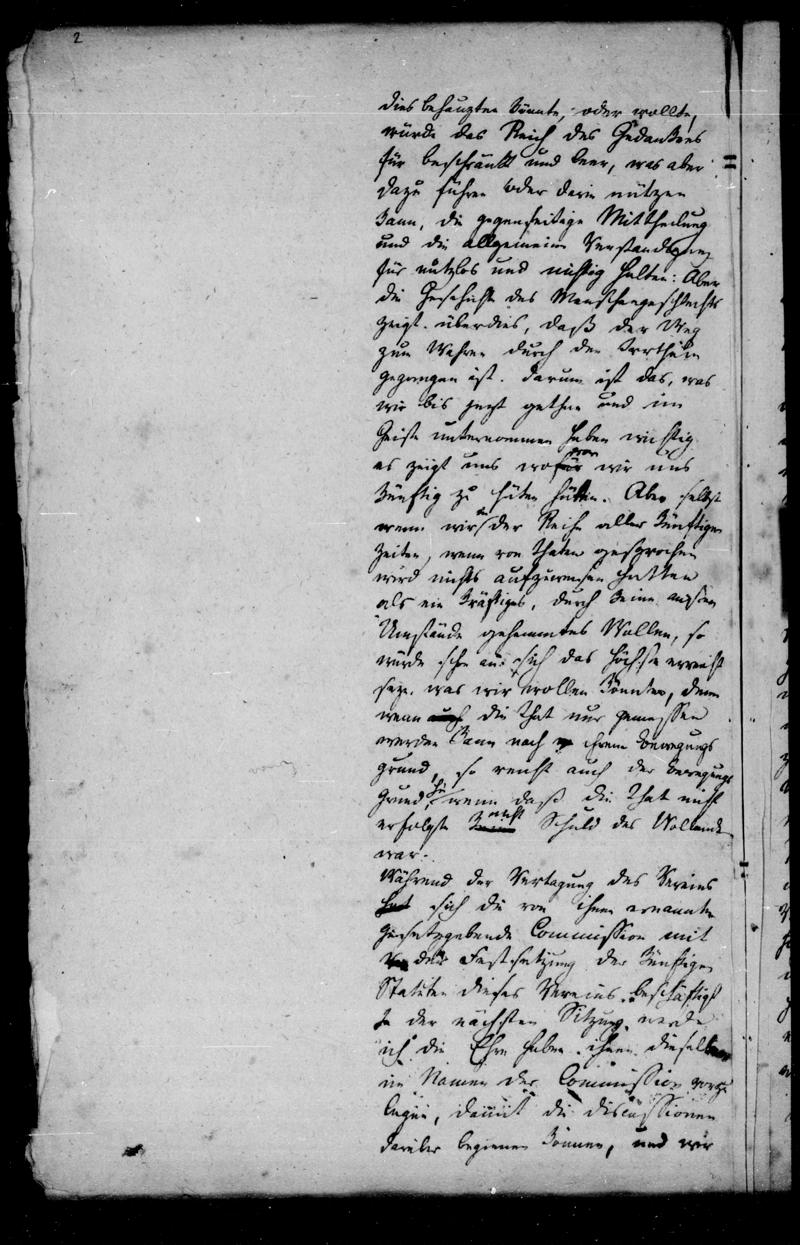 2
dies behaupten könnte, oder wollte,
würde das Reich des Gedankens
für beschränkt und leer, was aber
dazu führen oder darin nützen
kann, die gegenseitige Mittheilung
und die allgemeine
für nutzlos und nichtig halten: Aber
die Geschichte des Menschengeschlechts
zeigt überdies, daß der Weg
zum Wahren durch den Irrthum
gegangen ist. Darum ist das, was
wir bis jezt gethan und im
Geiste unternommen haben wichtig
es zeigt uns wovor wir uns
künftig zu hüten hätten. Aber selbst
wenn wir in der Reihe aller künftigen
Zeiten, wenn von Thaten gesprochen
wird nichts aufzuweisen hätten
als ein kräftiges, durch keine
Umstände gehemmtes Wollen, so
würde schon an sich das Höchste erreicht
seyn was wir wollen könnten, denn
wenn auch die That nur gemessen
werden kann nach ihrem Bewegungs
grund, so reicht auch der Bewegungs
grund hin, wenn daß die That nicht
erfolgte nicht Schuld des Wollende
war.
Während der Vertagung des Vereins
hat sich die von ihnen ernannte
gesetzgebende Commission mit
der Festsetzung der künftigen
Statuten dieses Vereins beschäftigt
In der nächsten Sitzung werde
ich die Ehre haben ihnen dieselben
im Namen der Commission vorzu
legen, damit die Discussionen
darüber beginnen können, und wir